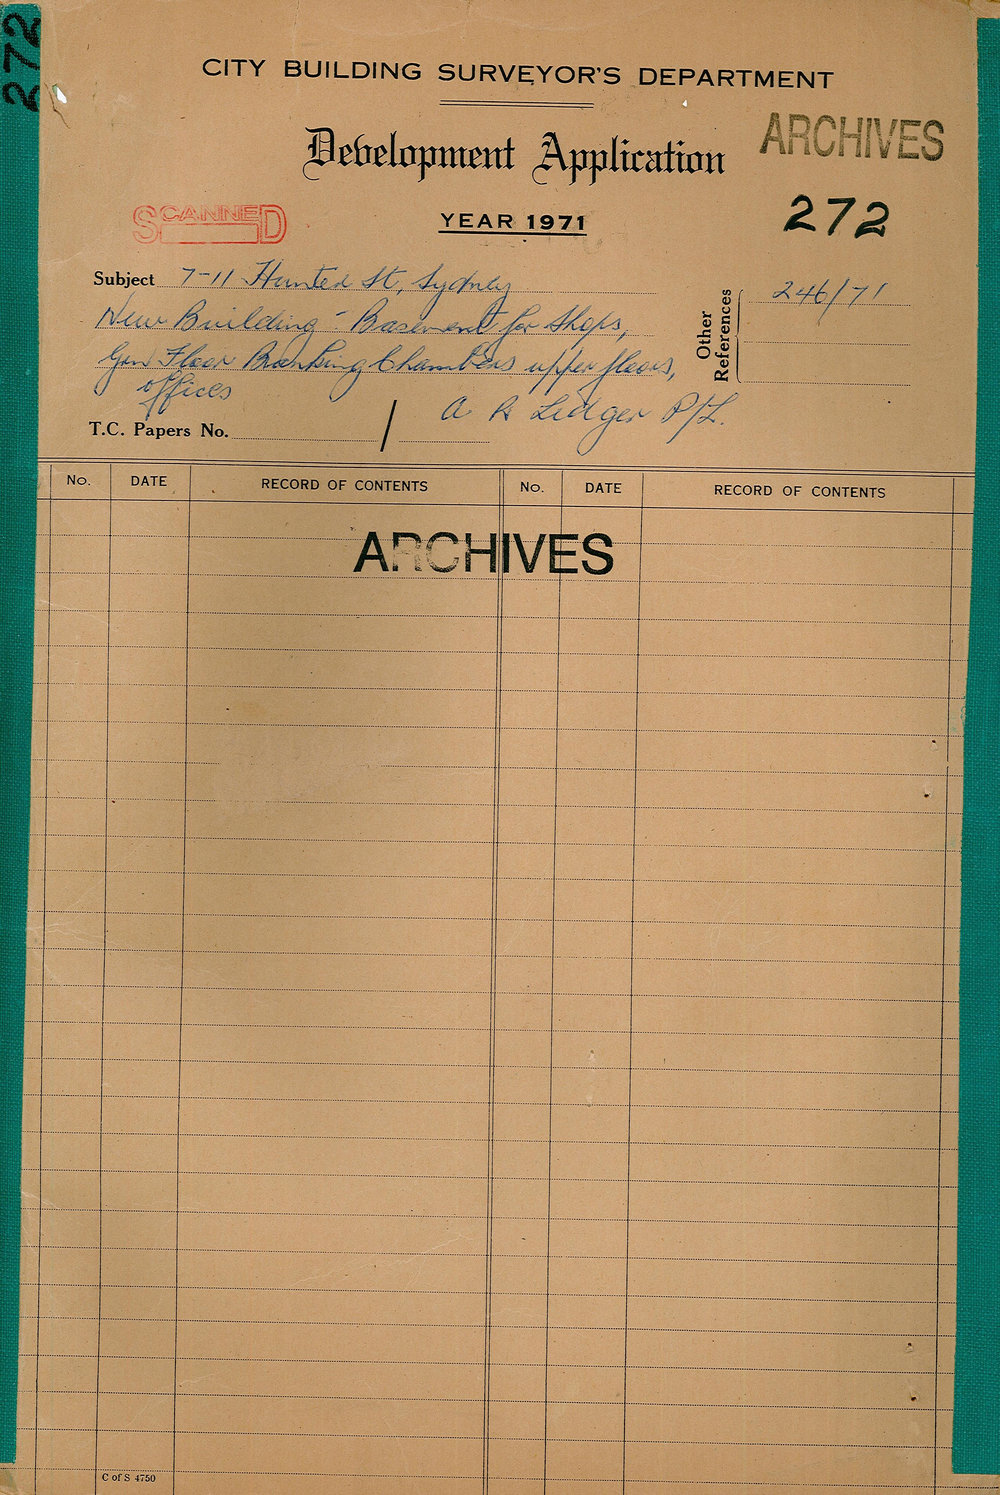 272
CITY BUILDING SURVEYOR'S DEPARTMENT
Development Application
ARCHIVES
SCANNED
YEAR 1971
272
Subject 7-11 Hunter St, Sydney
New Building - Basement for Shops,
Grn Floor Banking Chambers upper floors,
offices
Other References
246/71
T.C. Papers No. /
A R Ledger P/L.
No. DATE RECORD OF CONTENTS No. DATE RECORD OF CONTENTS
ARCHIVES
C of S 4750